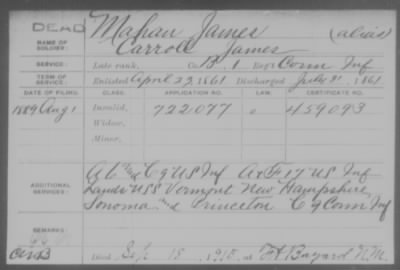 DEAD
Mahan James (alias)
NAME OF SOLDIER: Carroll James
SERVICE: Late rank, Co. B. 1 Reg't Conn Inf
TERM OF SERVICE: Enlisted April 22, 1861 Discharged July 31, 1861
DATE OF FILING. CLASS. APPLICATION NO. LAW. CERTIFICATE NO.
1889 Aug 1 Invalid, 722077 459093
Widow,
Minor,
A 6 and C 9 US Inf A & F 17 US Inf
ADDITIONAL SERVICES: USS Vermont New Hampshire
Sonoma and Princeton C 9 Conn Inf
REMARKS:
Died 18, 1915, at Ft Bayard N.M.